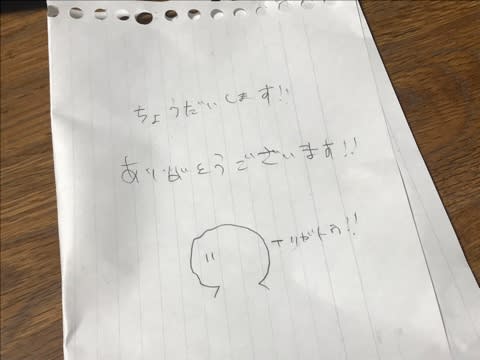 ちょうだいします!!
ありがとうございます!!
アリガトウ!!